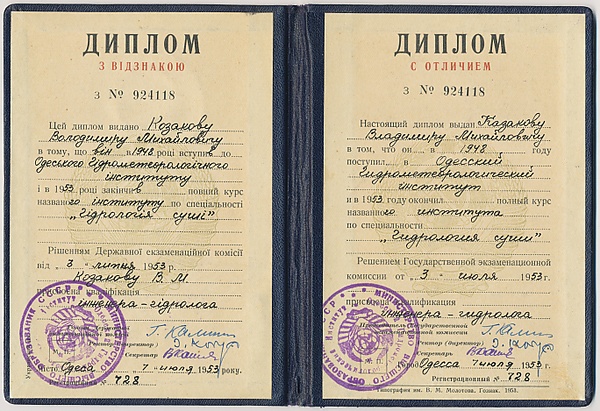 ДИПЛОМ
З ВІДЗНАКОЮ
З № 924118
Цей диплом видано Козакову
Володимиру Михайловичу
в тому, що він в 1948 році вступив до
Одеського Гідрометеорологічного
інституту
і в 1953 році закінчив повний курс
названого інституту по спеціальності
„Гідрологія суші"
Рішенням Державної екзаменаційної комісії
від „3" липня 1953 р.
Козакову В. М.
кваліфікація
інженера-гідролога
Секретар
Одеса 7 июля 1953 року.
728
ДИПЛОМ
С ОТЛИЧИЕМ
З № 924118
Настоящий диплом выдан Казакову
Владимиру Михайловичу
в том, что он в 1948 году
поступил в Одесский
Гидрометеорологический
институт
и в 1953 году окончил полный курс
названного института
по специальности
„Гидрология суши"
Решением Государственной экзаменационной
комиссии от „3" июля 1953 г.
присвоена квалификация
инженера-гидролога
Председатель Государственной
экзаменационной комиссии
Ректор (директор)
Секретарь
Город Одесса 7 июля 1953 г.
Регистрационный № 728
Типография им. В. М. Молотова. Гознак. 1953.